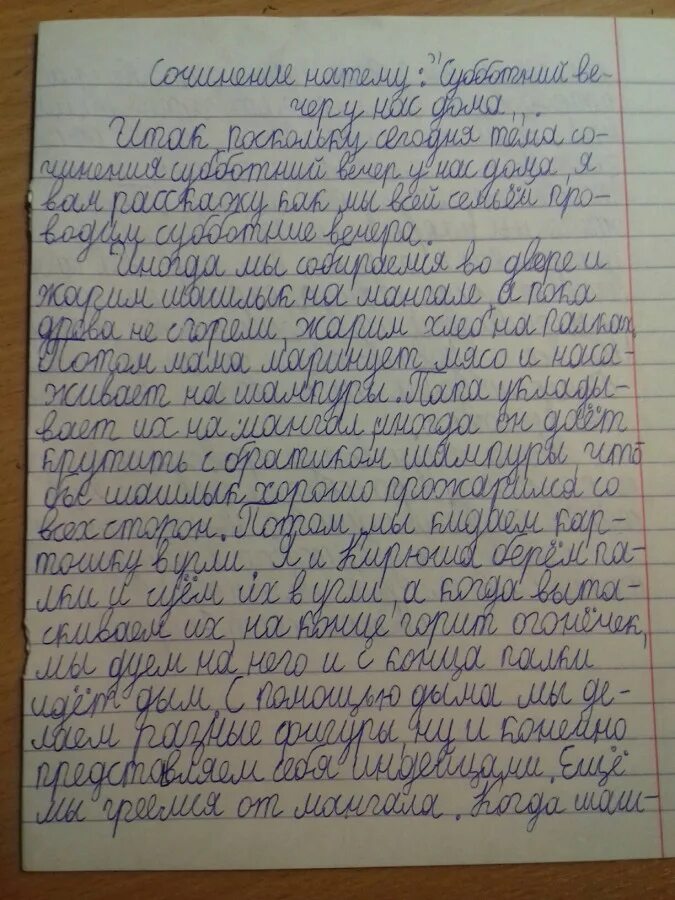 Сочинение на тему: "Субботний ве-
чер у нас дома".
Итак, поскольку сегодня тема со-
чинения субботний вечер у нас дома, я
вам расскажу как мы всей семьёй про-
водим субботние вечера.
Иногда мы собираемся во дворе и
жарим шашлык на мангале, а пока
дрова не сгорели, жарим хлеб на палках.
Потом мама маринует мясо и наса-
живает на шампуры. Папа уклады-
вает их на мангал, иногда он даёт
крутить с братиком шампуры, что
бы шашлык хорошо прожарился со
всех сторон. Потом мы кидаем кар-
тошку в угли. Я и Кирюша берём па-
лки и суём их в угли, а когда выта-
скиваем их, на конце горит огонёчек,
мы дуем на него и с конца палки
идёт дым. С помощью дыма мы де-
лаем разные фигуры, ну и конечно
представляем себя индейцами. Ещё
мы греемся от мангала. Когда шаш-